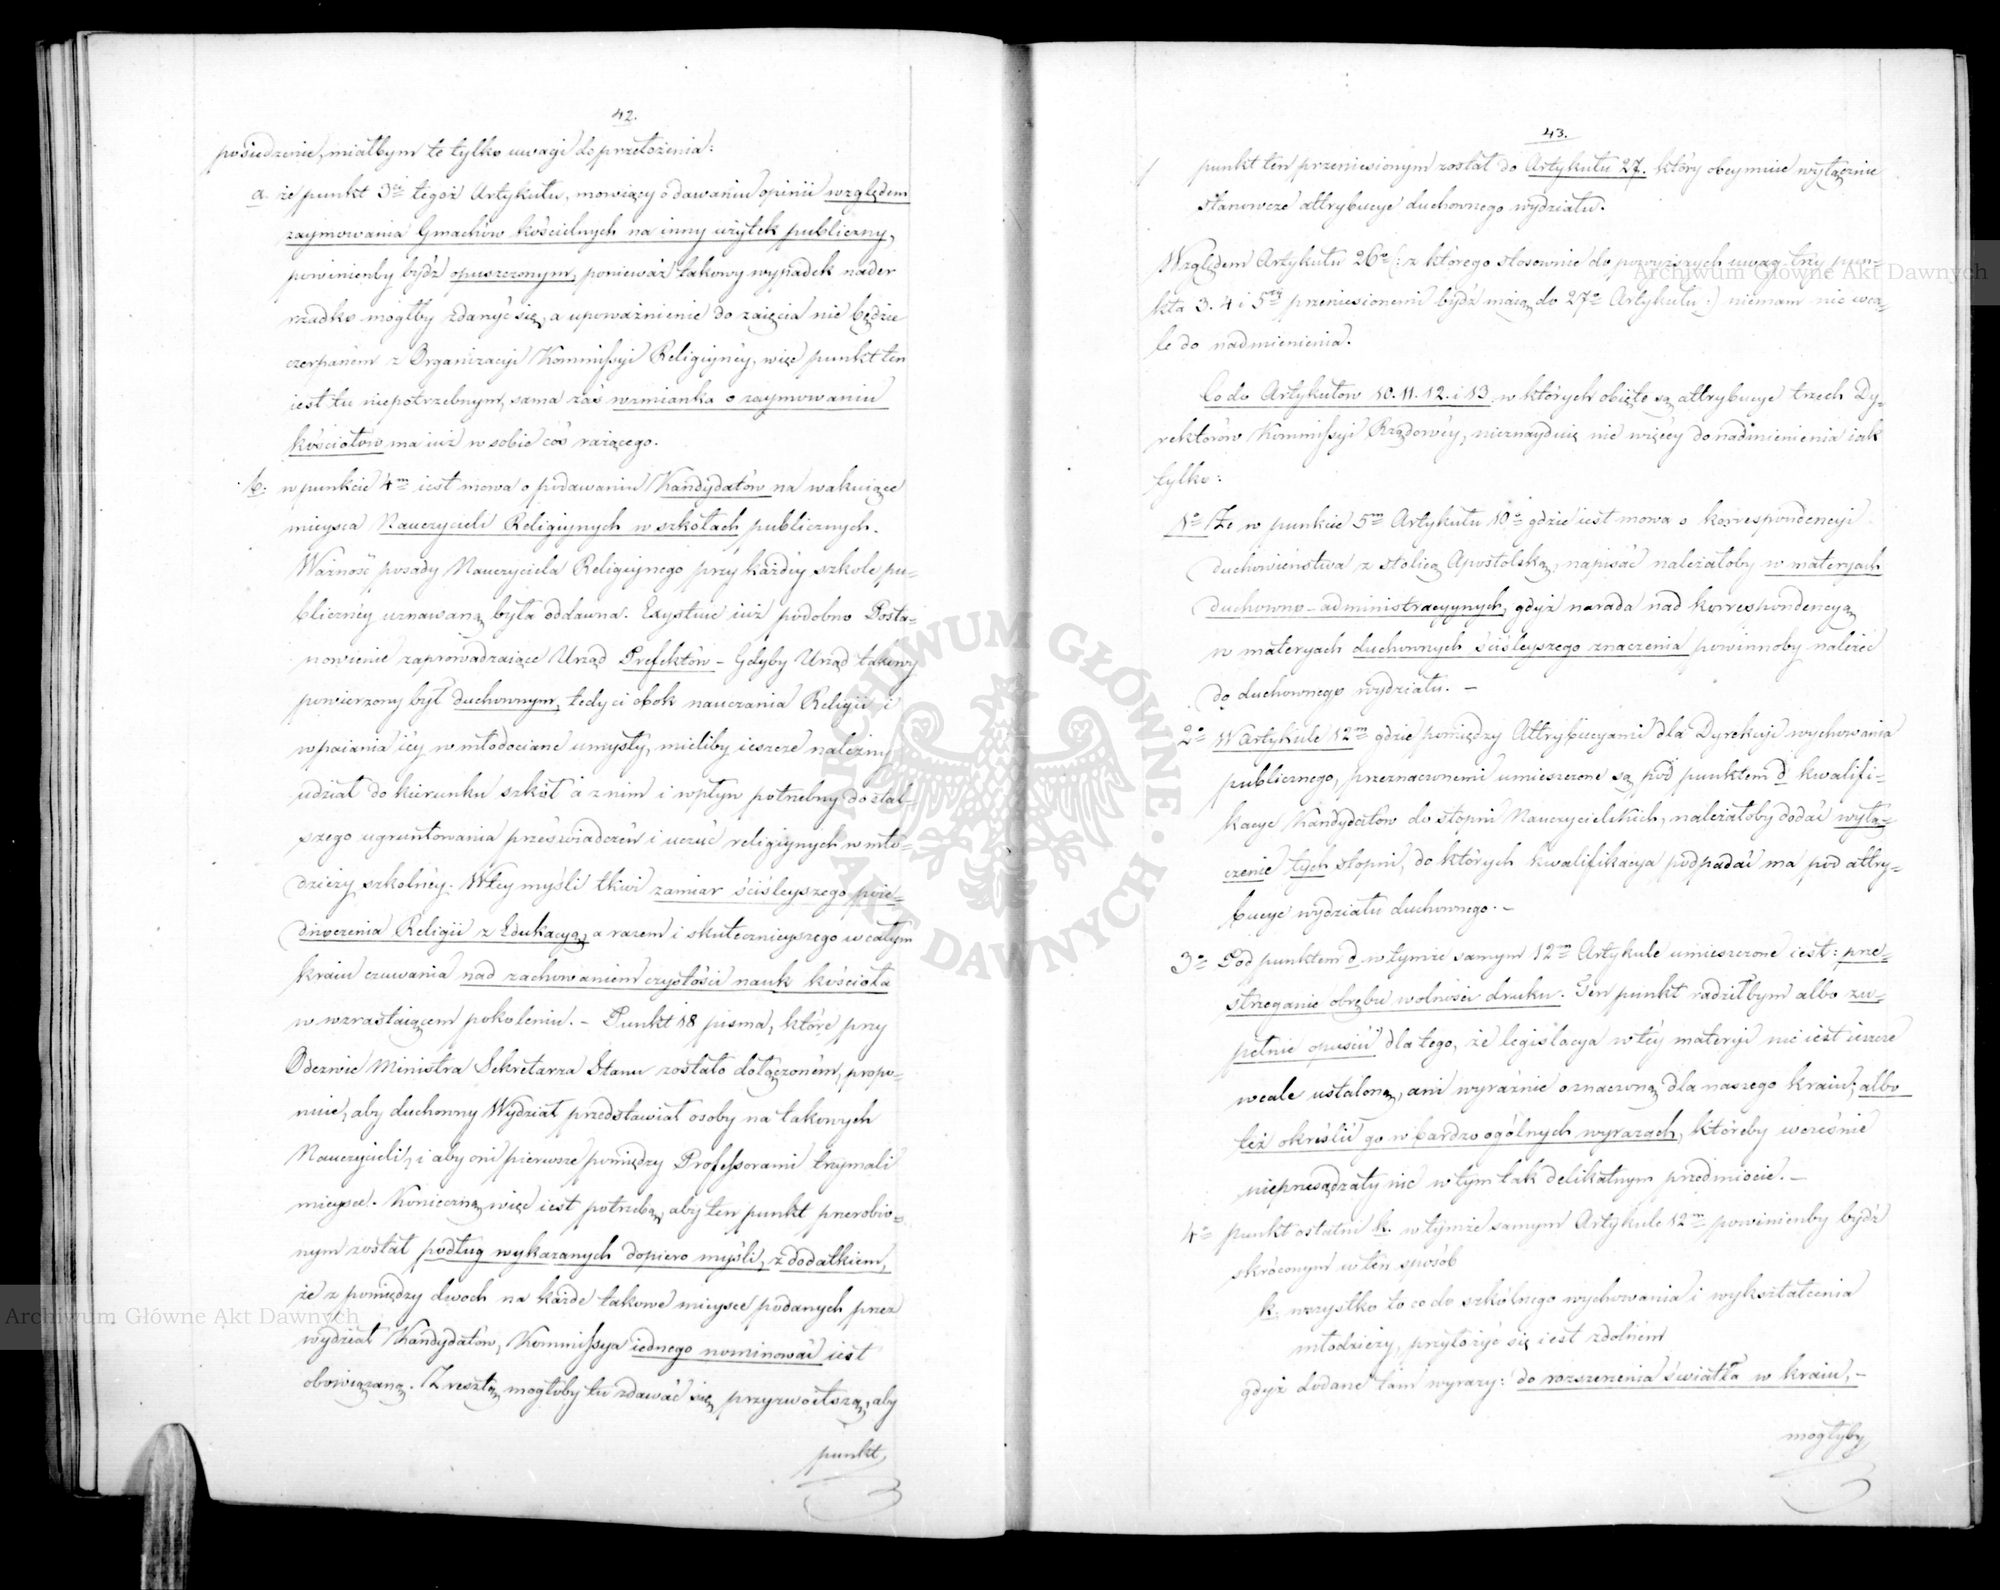 42.
posiedzenie, miałbym te tylko uwagi do przełożenia:
a. że punkt 3ci tegoż Artykułu, mowiący o dawaniu opinii względem
zaymowania Gmachów kościelnych na inny użytek publiczny,
powinienby bydź opuszczonym, ponieważ takowy wypadek nader
rzadko mogłby zdarzyć się, a upoważnienie do zaięcia nie będzie
czerpaném z Organizacyi Kommissyi Religiynéy, więc punkt ten
iest tu niepotrzebnym, sama zaś wzmianka o zaymowaniu
kościołów ma iuż w sobie coś rażącego.
b: w punkcie 4m iest mowa o podawaniu Kandydatów na wakuiące
mieysca Nauczycieli Religiynych w szkołach publicznych.
Ważność posady Nauczyciela Religiynego przy każdéy szkole pu-
bliczney uznawaną była oddawna. Exystuie iuż podobno Posta-
nowienie zaprowadzaiące Urząd Prefektów – Gdyby Urząd takowy
powierzony był duchownym, tedy ci obok nauczania Religii i
wpaiania iéy w młodociane umysły, mieliby ieszcze należny
udział do kierunku szkół a z nim i wpływ potrzebny do dal-
szego ugruntowania przeświadczeń i uczuć religiynych w mło-
dzieży szkolnéy. W téy myśli tkwi zamiar ściśleyszego poie-
dnoczenia Religii z Edukacyą, a razem i skutecznieyszego w całym
kraiu czuwania nad zachowaniem czystości nauk kościoła
w wzrastaiącém pokoleniu. – Punkt 18 pisma, które przy
Odezwie Ministra Sekretarza Stanu zostało dołączoném, propo-
nuie, aby duchowny Wydział przedstawiał osoby na takowych
Nauczycieli, i aby oni pierwsze pomiędzy Professorami trzymali
mieysce. Konieczną więc iest potrzebą, aby ten punkt przerobio-
nym został podług wykazanych dopiero myśli, z dodatkiem,
że z pomiędzy dwoch na każde takowe mieysce podanych przez
wydział Kandydatów, Kommissya iednego nominować iest
obowiązaną. Zresztą mogłoby tu zdawać się przyzwoitszą, aby
punkt
43.
punkt ten przeniesionym został do Artykułu 27. który obeymuie wyłącznie
stanowcze attrybucye duchownego wydziału.
Względem Artykułu 26o (: z którego stosownie do powyższych uwag trzy pun-
kta 3. 4 i 5ty przeniesionemi bydź maią do 27o Artykułu :) niemam nic wca-
le do nadmienienia.
Co do Artykułów 10. 11. 12. i 13 w których obięte są attrybucye trzech Dy-
rektorów Kommissyi Rządowéy, nieznayduię nic więcéy do nadmienienia iak
tylko:
1o Że w punkcie 5m Artykułu 10o gdzie iest mowa o korrespondencyi
duchowieństwa z stolicą Apostolską, napisać należałoby w materyach
duchowno-administracyynych, gdyż narada nad korrespondencyą
w materyach duchownych ściśleyszego znaczenia powinnoby należéć
do duchownego wydziału. –
2o W Artykule 12m gdzie pomiędzy Attrybucyami dla Dyrekcyi wychowania
publicznego, przeznaczonemi umieszczone są pod punktem d kwalifi-
kacye Kandydatów do stopni Nauczycielskich, należałoby dodać wyłą-
czenie tych stopni, do których kwalifikacya podpadać ma pod attry-
bucye wydziału duchownego. –
3o Pod punktem d w tymże samym 12m Artykule umieszczone iest: prze-
strzeganie obrębu wolności druku. Ten punkt radziłbym albo zu-
pełnie opuścić dla tego, że legislacya w téy materyi nie iest ieszcze
wcale ustaloną, ani wyraźnie oznaczoną dla naszego kraiu; albo
też określić go w bardzo ogólnych wyrazach, któreby wcześnie
nieprzesądzały nic w tym tak delikatnym przedmiocie. –
4o punkt ostatni k. w tymże samym Artykule 12m powinienby bydź
skróconym w ten sposób
k. wszystko to co do szkólnego wychowania i wykształcenia
młodzieży, przyłożyć się iest zdolném
gdyż dodane tam wyrazy: do rozszerzenia światła w kraiu, –
mogłyby
Archiwum Główne Akt Dawnych
Archiwum Główne Akt Dawnych
ARCHIWUM GŁÓWNE AKT DAWNYCH